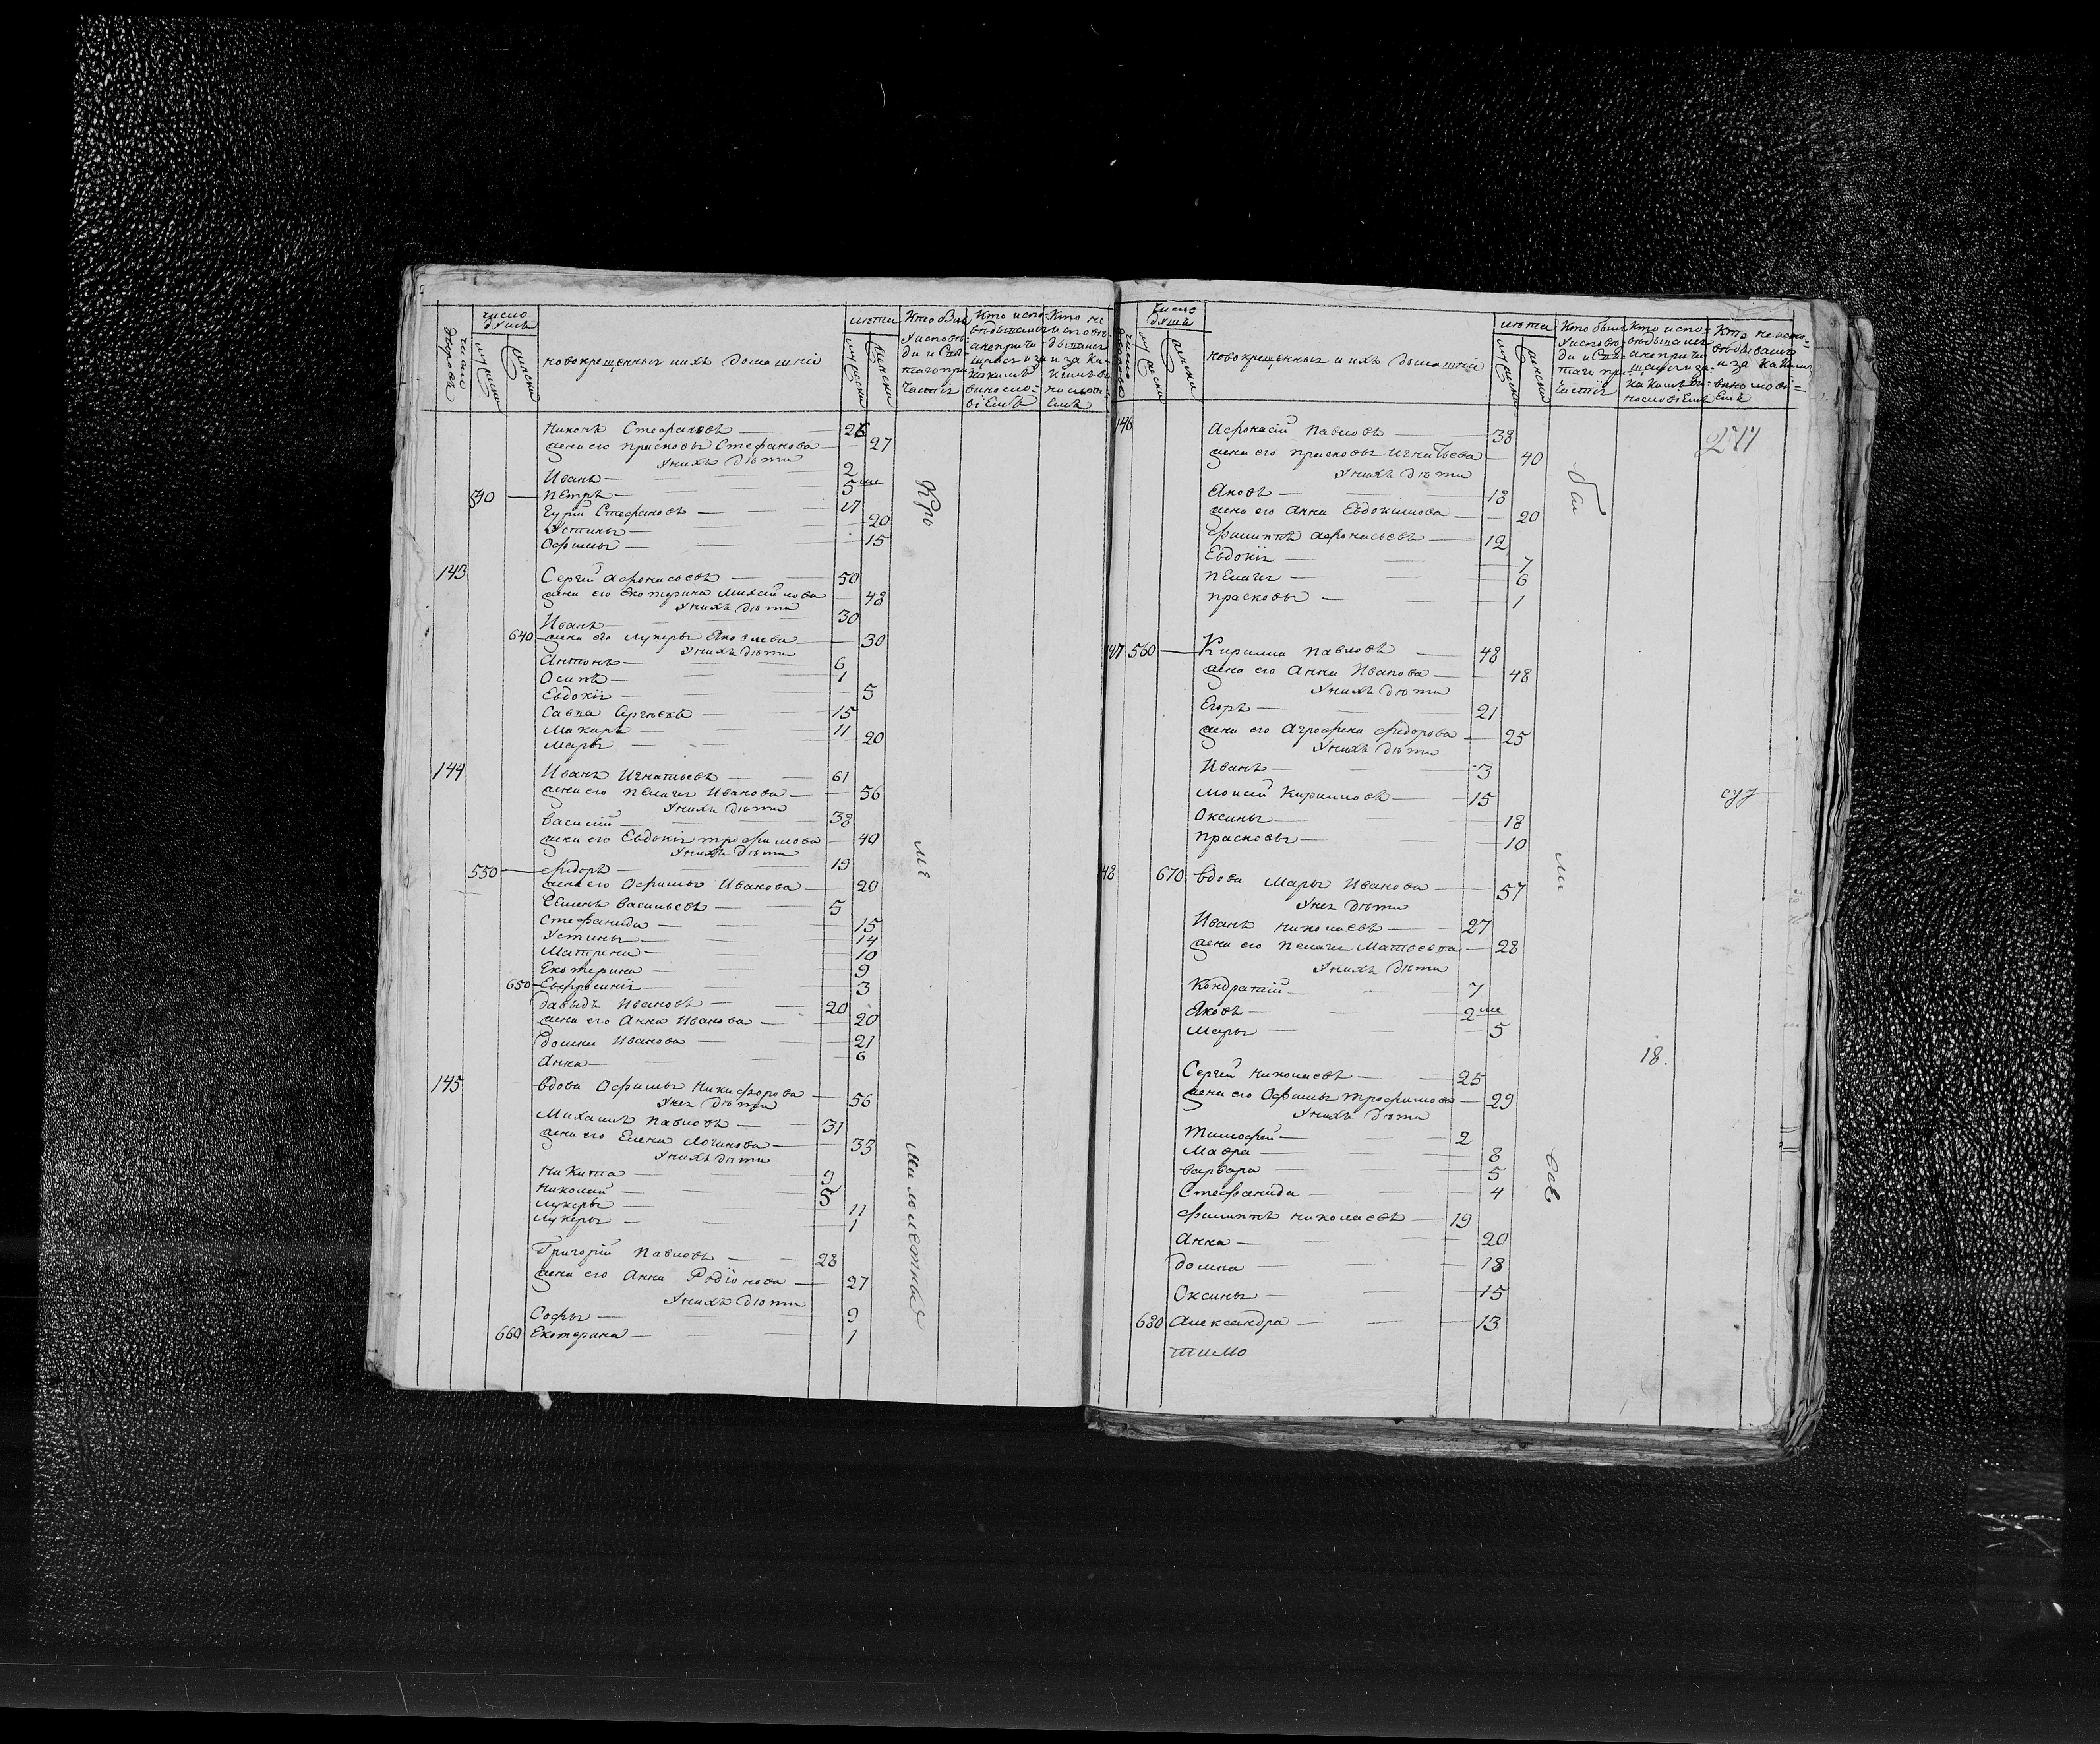 число дворовъ
число душъ
мужеска
женска
новокрещенныя и ихъ домашнія
лѣта
мужеска
женска
Кто былъ
у исповѣ-
ди и Свя-
таго при-
частія
Кто испо-
вѣдывался
а не прича-
щался и за
какимъ
виносло-
віемъ
Кто не
исповѣ-
дывался
и за ка-
кимъ ви-
нословi-
емъ
Никонъ Стефановъ — 26
жена его Прасковья Стефанова — 27
У нихъ дѣти
Иванъ — 2
540 — Петръ — 5
Гурій Стефановъ — 17
Устинья — 20
Офимья — 15
143 Сергѣй Афонасьевъ — 50
жена его Екотерина Михайлова — 48
У нихъ дѣти
Иванъ — 30
640 жена его Лукерья Яковлева — 30
У нихъ дѣти
Антонъ — 6
Осипъ — 1
Евдокія — 5
Савва Сергѣевъ — 15
Макаръ — 11
Марья — 20
144 Иванъ Игнатьевъ — 61
жена его Пелагея Иванова — 56
У нихъ дѣти
Василій — 38
жена его Евдокія Трофимова — 40
У нихъ дѣти
550 — Фидоръ — 19
жена его Офимья Иванова — 20
Семенъ Васильевъ — 5
Стефанида — 15
Устинья — 14
Матрена — 10
Екотерина — 9
650 Евфросинія — 3
Давыдъ Ивановъ — 20
жена его Анна Иванова — 20
Домна Иванова — 21
Анна — 6
145 Вдова Офимья Никифорова — 56
У нея дѣти
Михаилъ Павловъ — 31
жена его Елена Логинова — 33
У нихъ дѣти
Никита — 9
Николай — 5
Лукерья — 11
Лукерья — 1
Григорій Павловъ — 28
жена его Анна Родіонова — 27
У нихъ дѣти
Софья — 9
660 Екотерина — 1
Кро
мѣ
милолетныхъ
число
число душъ
мужеска
женска
новокрещенныя и ихъ домашнія
лѣта
мужеска
женска
Кто былъ
у исповѣ-
ди и Свя-
таго при-
частія
Кто испо-
вѣдывался
а не прича-
щался и за
какимъ ви-
нословіемъ
Кто не испо-
вѣдывался
и за какимъ
винословi-
емъ
146 Афонасій Павловъ — 38
жена его Прасковья Игнатьева — 40
У нихъ дѣти
Яковъ — 18
жена его Анна Евдокимова — 20
Филиппъ Афонасьевъ — 12
Евдокія — 7
Пелагея — 6
Прасковья — 1
147 560 — Кирилла Павловъ — 48
жена его Анна Иванова — 48
У нихъ дѣти
Егоръ — 21
жена его Агрофена Фидорова — 25
У нихъ дѣти
Иванъ — 3
Моисей Кирилловъ — 15
Оксинья — 18
Прасковья — 10
48 670 Вдова Марья Иванова — 57
У нея дѣти
Иванъ Николаевъ — 27
жена его Пелагея Матвеева — 28
У нихъ дѣти
Кондратій — 7
Яковъ — 2
Марья — 5
Сергѣй Николаевъ — 25
жена его Офимья Трофимова — 29
У нихъ дѣти
Тимофей — 2
Мавра — 8
Варвара — 5
Стефанида — 4
Филиппъ Николаевъ — 19
Анна — 20
Домна — 18
Оксинья — 15
680 Александра — 13
тимо
бы
ли
всѣ
18.